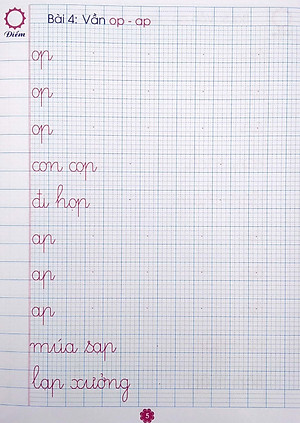 Bài 4: Vần op - ap
Điểm
op
op
op
con cọp
đi họp
ap
ap
ap
múa sạp
lạp xưởng
5